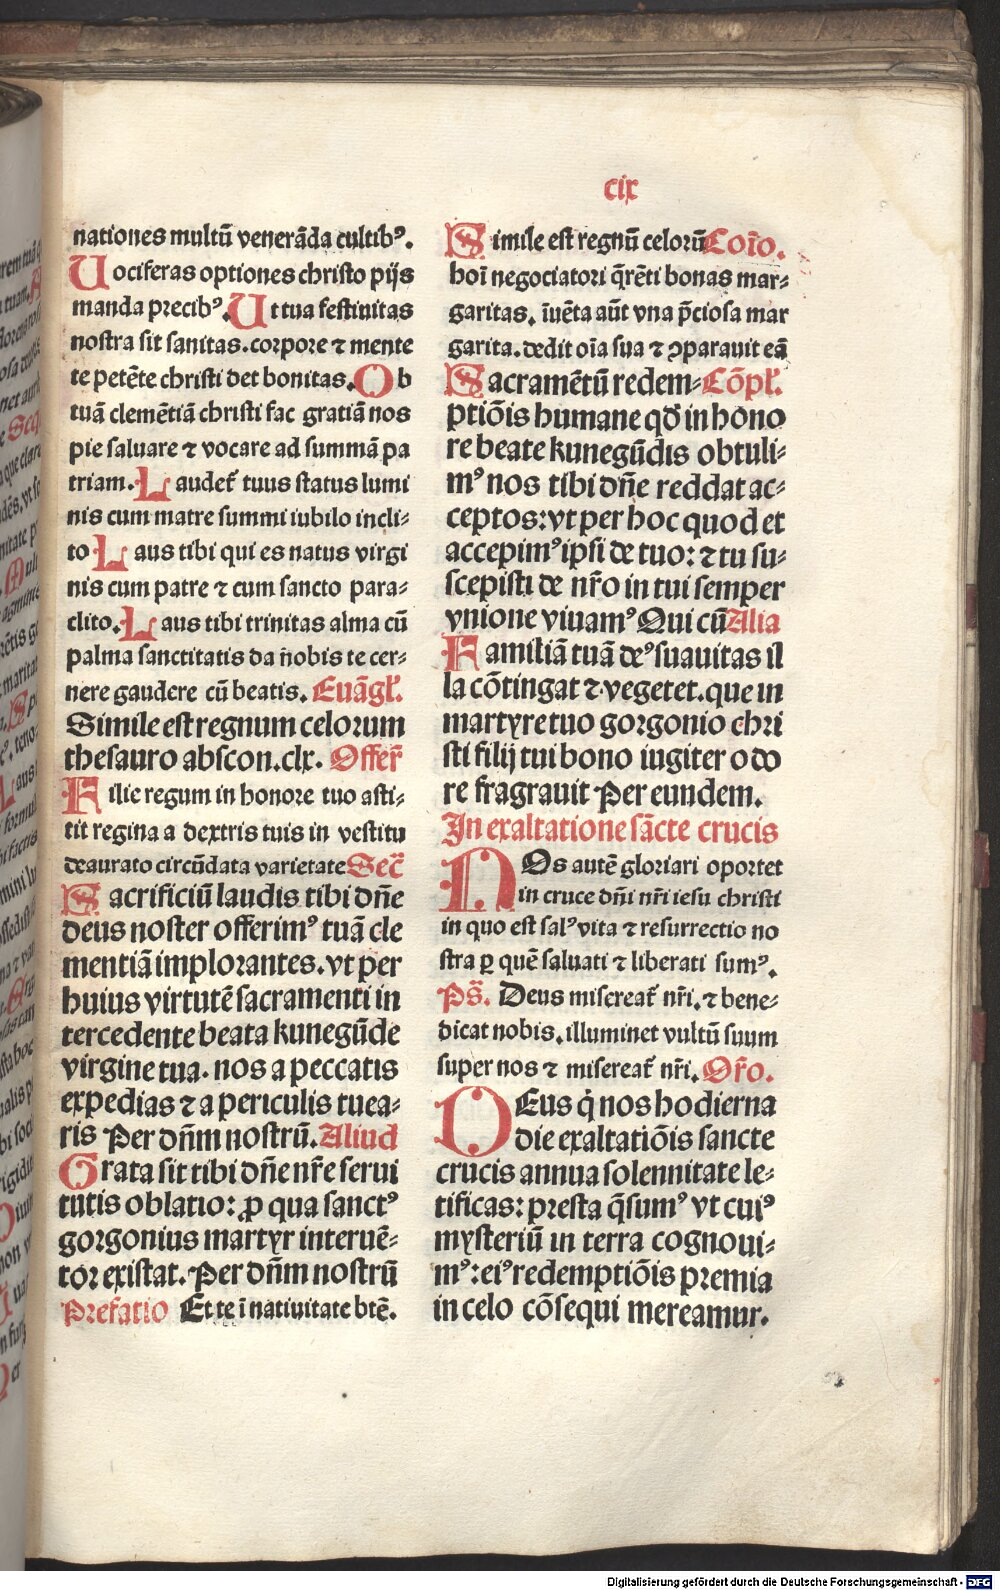 cix
nationes multū venerāda cultibꝰ.
Uociferas optiones christo pijs
manda precibꝰ. Ut tua festinitas
nostra sit sanitas. corpore ⁊ mente
te petēte christi det bonitas. Ob
tuā clemētiā christi fac gratiā nos
pie saluare ⁊ vocare ad summā pa
triam. Laudet̃ tuus status lumi
nis cum matre summi iubilo incli⸗
to Laus tibi qui es natus virgi
nis cum patre ⁊ cum sancto para⸗
clito. Laus tibi trinitas alma cū
palma sanctitatis da nobis te cer⸗
nere gaudere cū beatis. Euāgl̃.
Simile est regnum celorum
thesauro abscon. clx. Offer̃
Filie regum in honore tuo asti⸗
tit regina a dextris tuis in vestitu
deaurato circūdata varietate Sec̃
Sacrificiū laudis tibi dn̄e
deus noster offerimꝰ tuā cle
mentiā implorantes. vt per
huius virtutē sacramenti in
tercedente beata kunegūde
virgine tua. nos a peccatis
expedias ⁊ a periculis tuea⸗
ris Per dn̄m nostrū. Aliud
Grata sit tibi dn̄e nr̄e serui
tutis oblatio: ꝓ qua sanctꝰ
gorgonius martyr interuē⸗
tor existat. Per dn̄m nostrū
Prefatio Et te ī natiuitate btē.
Simile est regnū celorū Coīo.
hoī negociatori q̄rēti bonas mar⸗
garitas. īuēta aūt vna p̄ciosa mar
garita. dedit oīa sua ⁊ ꝯparauit eā
Sacramētū redem⸗ Cōpl̃.
ptiōis humane qd̄ in hono
re beate kunegūdis obtuli⸗
mꝰ nos tibi dn̄e reddat ac⸗
ceptos: vt per hoc quod et
accepimꝰ ipsi de tuo: ⁊ tu su⸗
scepisti de nr̄o in tui semper
vnione viuamꝰ Qui cū Alia
Familiā tuā deꝰ suauitas il
la cōtingat ⁊ vegetet. que in
martyre tuo gorgonio chri
sti filij tui bono iugiter odo
re fragrauit Per eundem.
In exaltatione sācte crucis
NOs autē gloriari oportet
in cruce dn̄i nr̄i iesu christi
in quo est salꝰ vita ⁊ resurrectio no
stra ꝑ quē saluati ⁊ liberati sumꝰ.
Ps̄. Deus misereat̃ nr̄i. ⁊ bene⸗
dicat nobis. illuminet vultū suum
super nos ⁊ misereat̃ nr̄i. Or̄o.
DEus q̇ nos hodierna
die exaltatiōis sancte
crucis annua solennitate le⸗
tificas: presta q̄sumꝰ vt cuiꝰ
mysteriū in terra cognoui⸗
mꝰ: eiꝰ redemptiōis premia
in celo cōsequi mereamur.
Digitalisierung gefördert durch die Deutsche Forschungsgemeinschaft - DFG